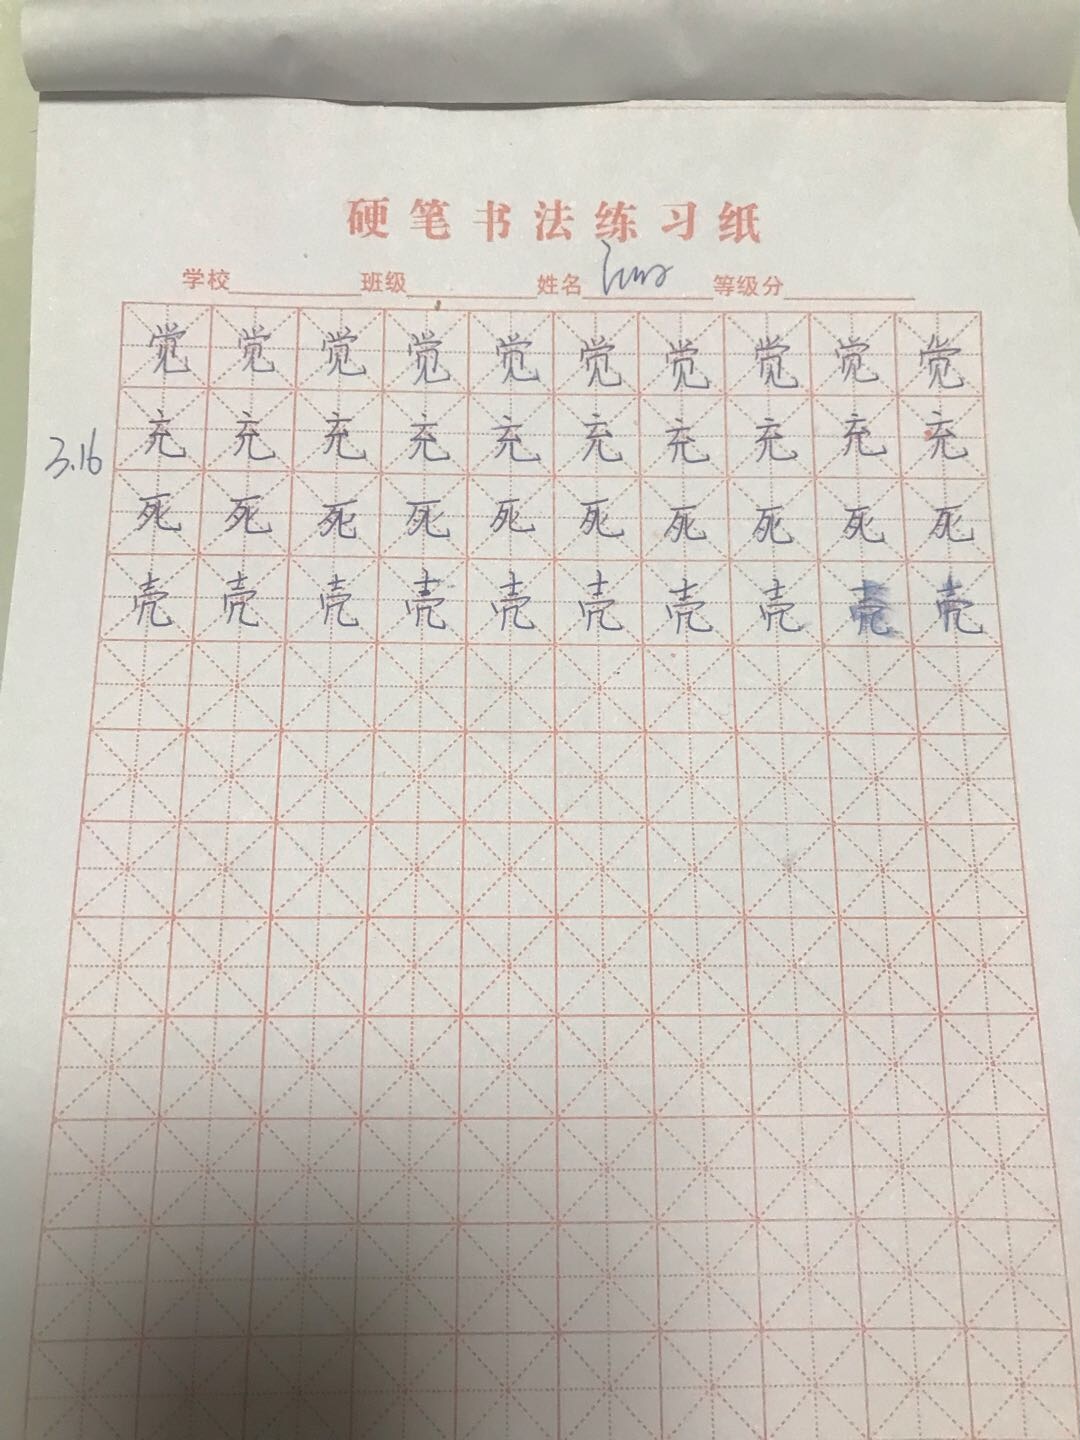 硬笔书法练习纸
学校 班级 姓名 等级分
觉觉觉觉觉觉觉觉觉觉
3.16 充充充充充充充充充充
死死死死死死死死死死
壳壳壳壳壳壳壳壳壳壳